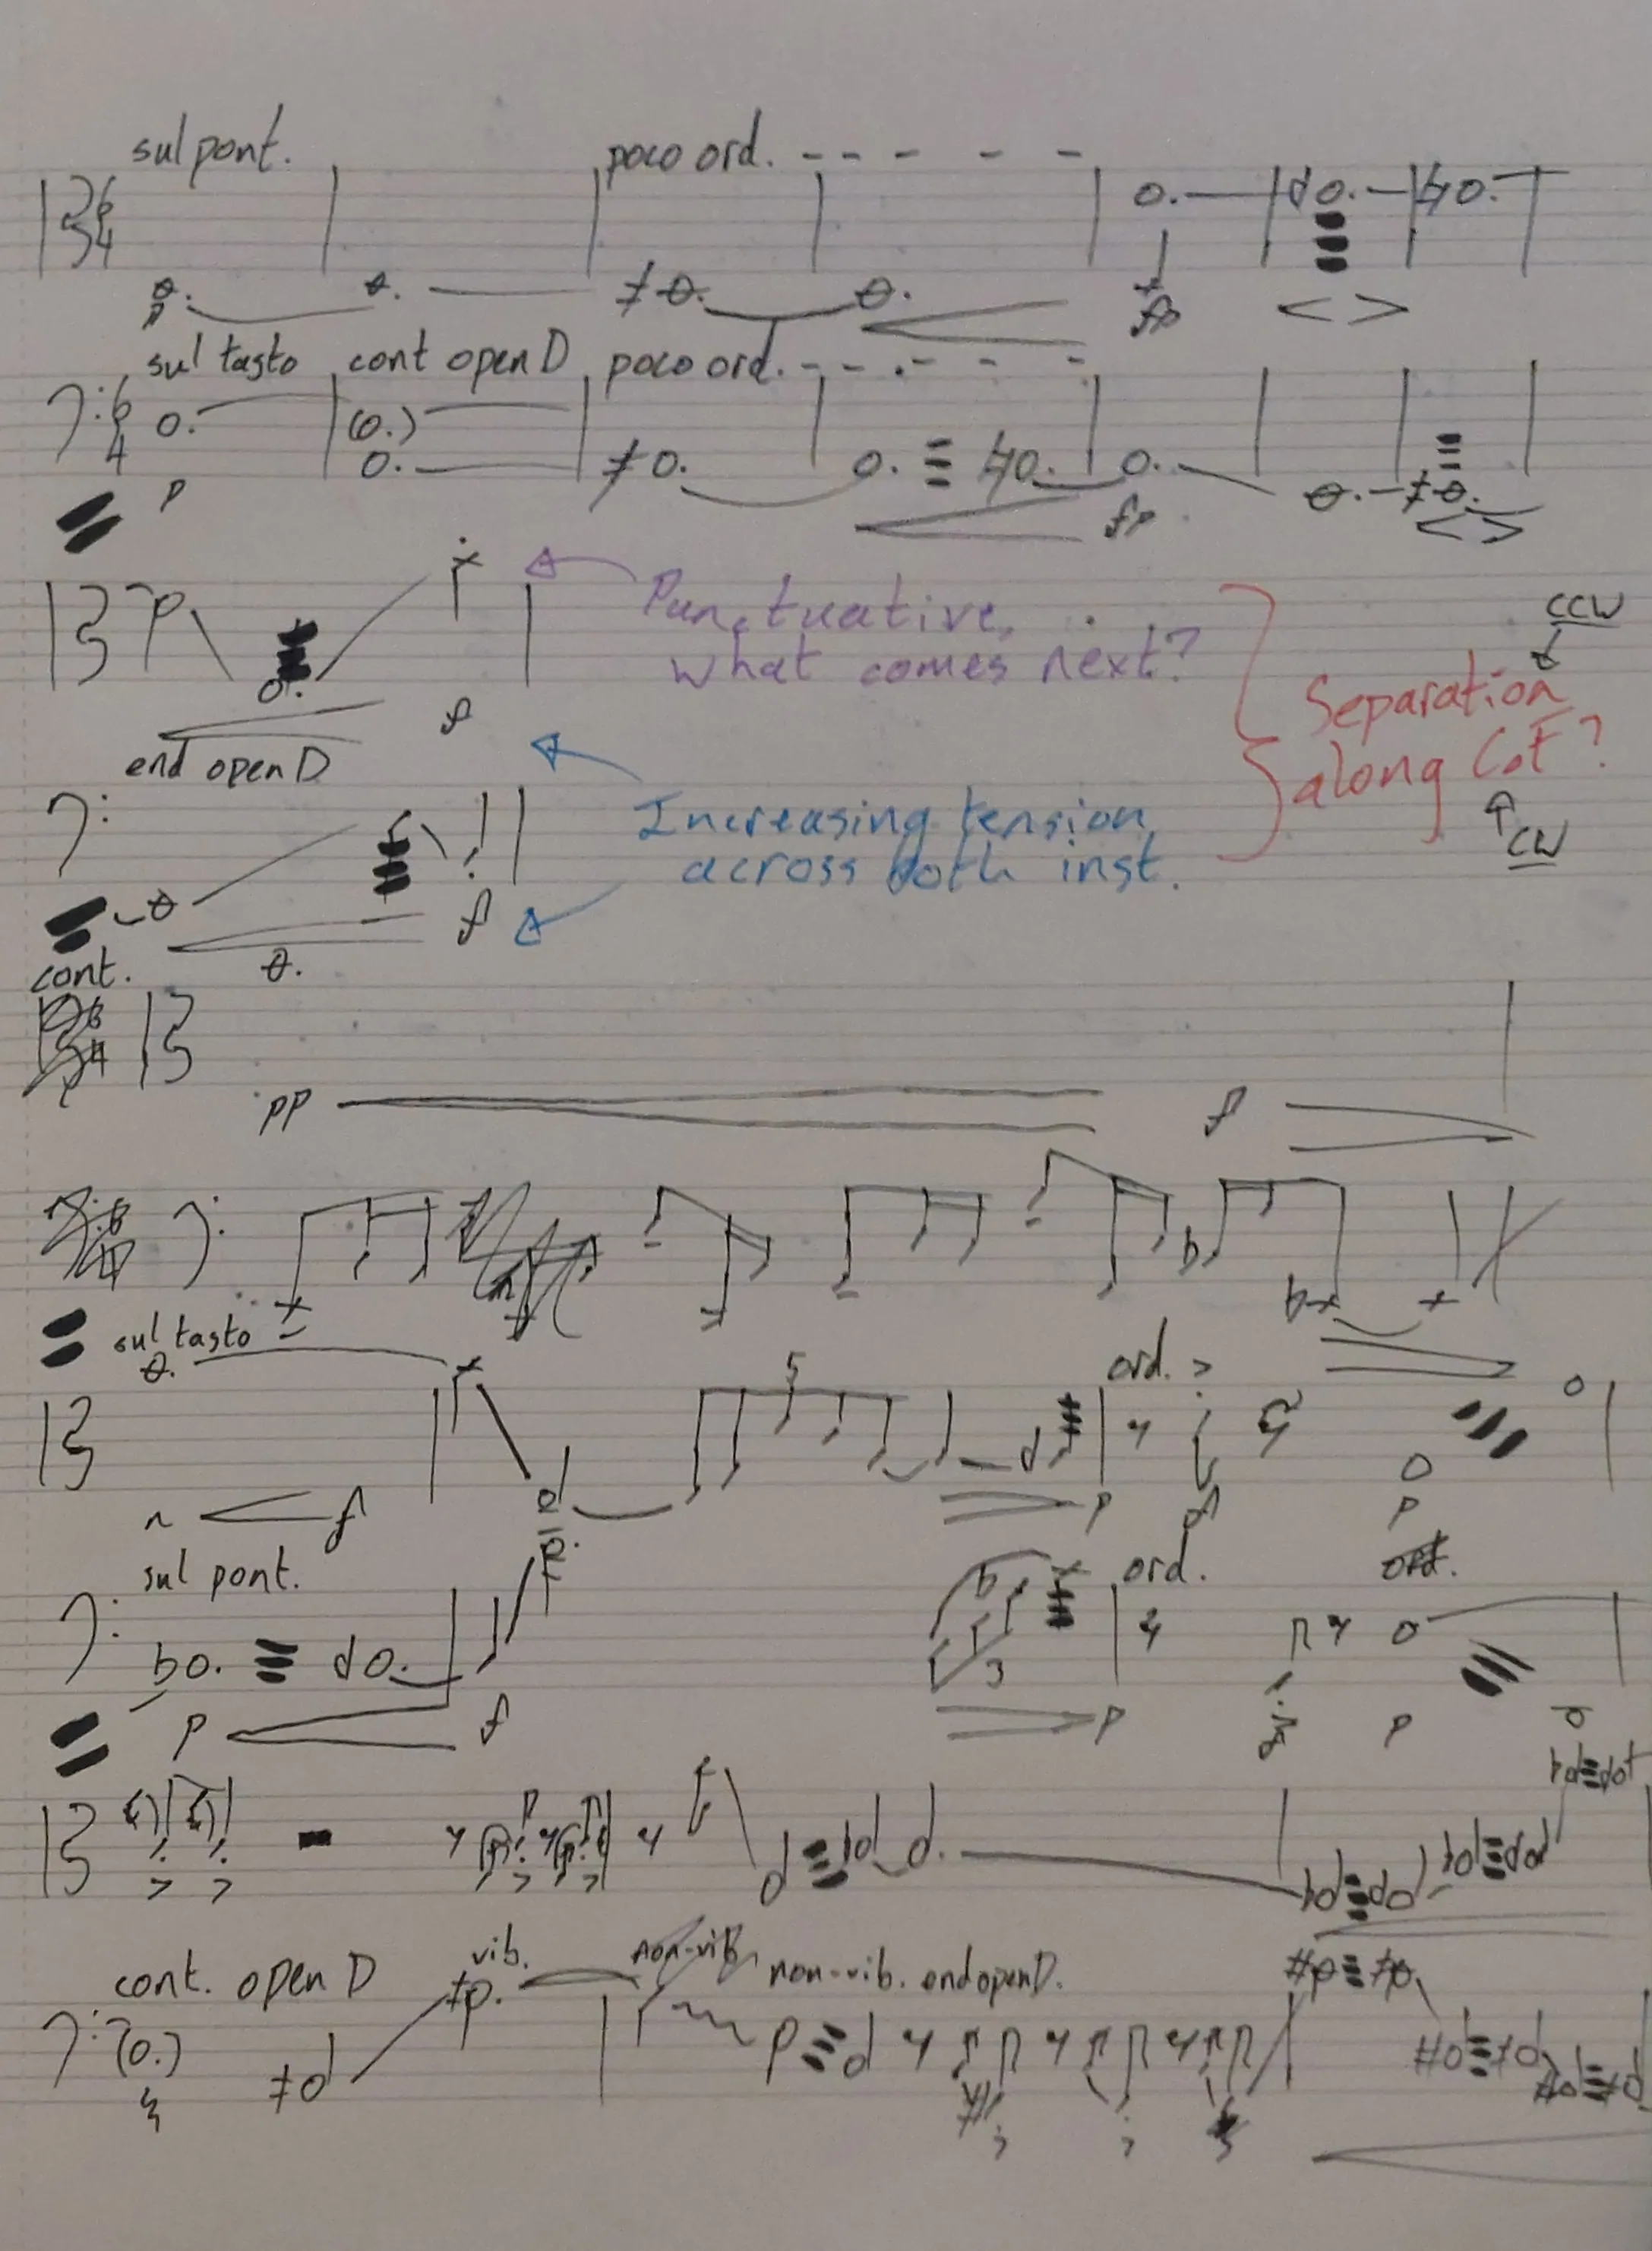 sul pont.
poco ord.
6
4
p
fp
sul tasto cont open D poco ord.
6
4
p
fp
Punctuative,
what comes next?
CCW
Separation
along CoF?
CW
f
end open D
Increasing tension
across both inst.
f
cont.
pp f
sul tasto
5
ord.
n f
p f p
sul pont.
ord.
3
p f
p p
cont. open D vib. non-vib. end open D.